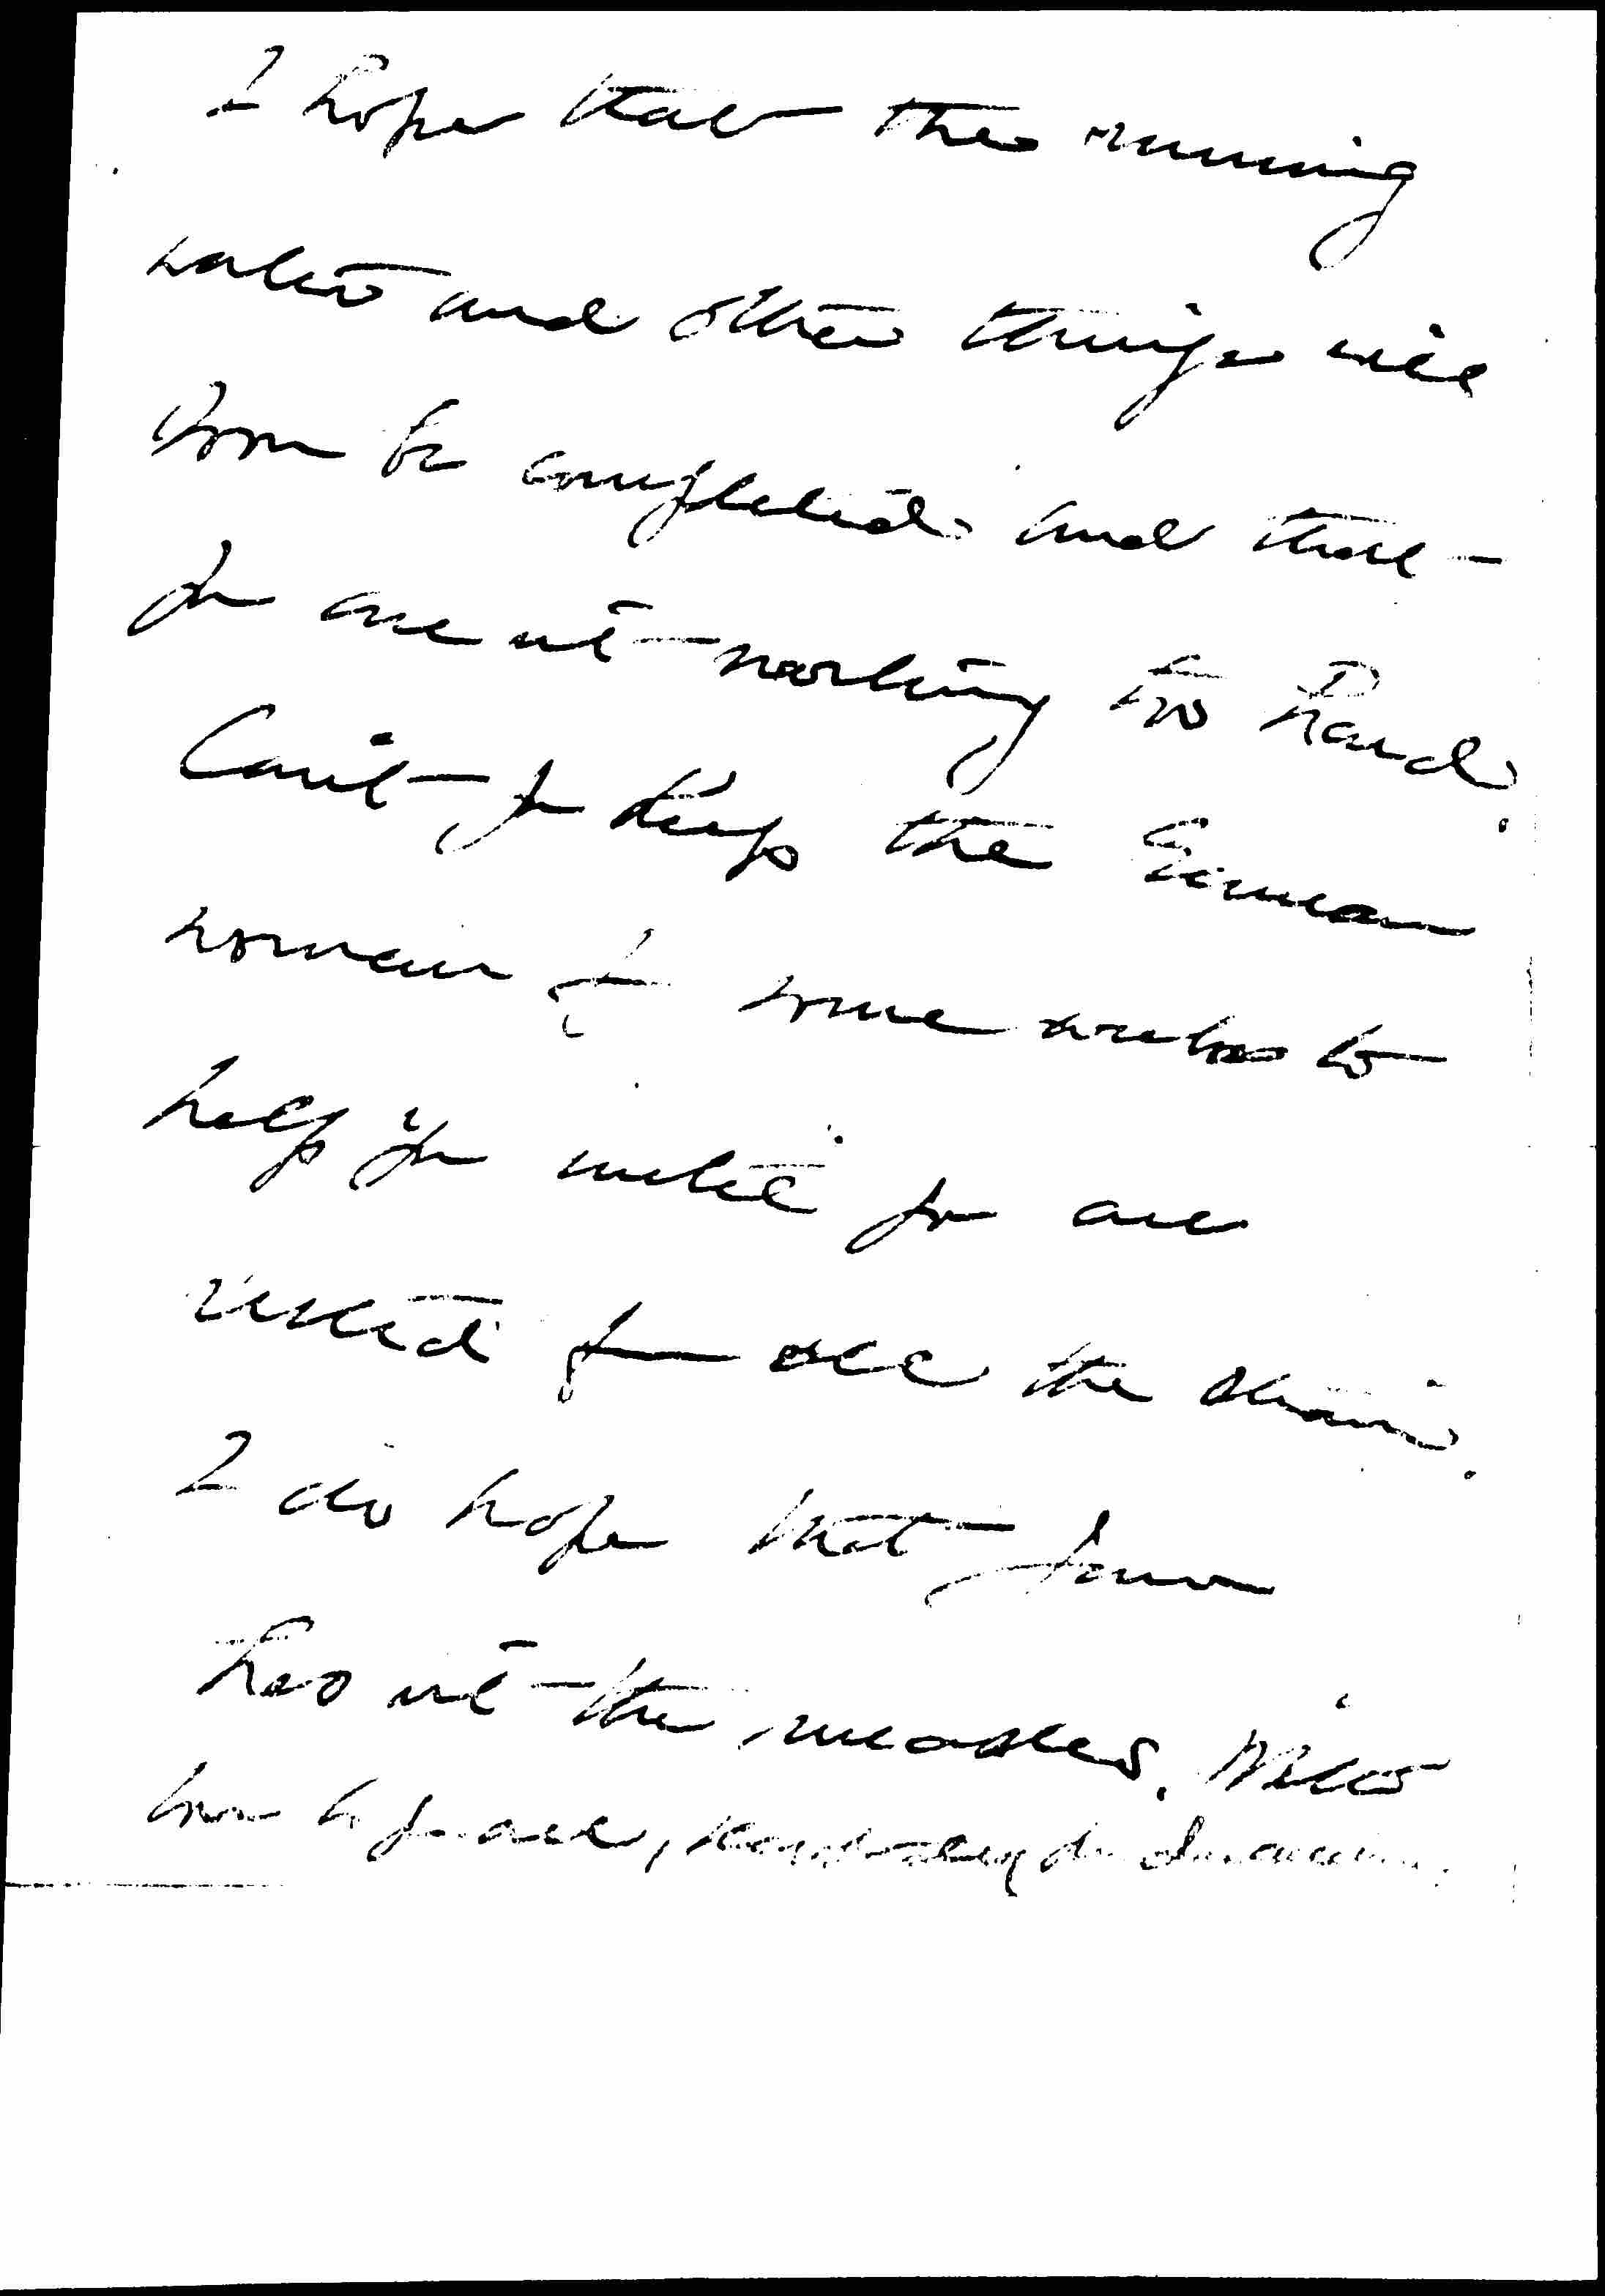 I hope that the running
water and other things will
soon be completed and that
you are not working too hard.
Can't you keep the German
woman for some weeks to
help you until you are
rested from all the strain.
I do hope that
has not the measles. With
love to you all,